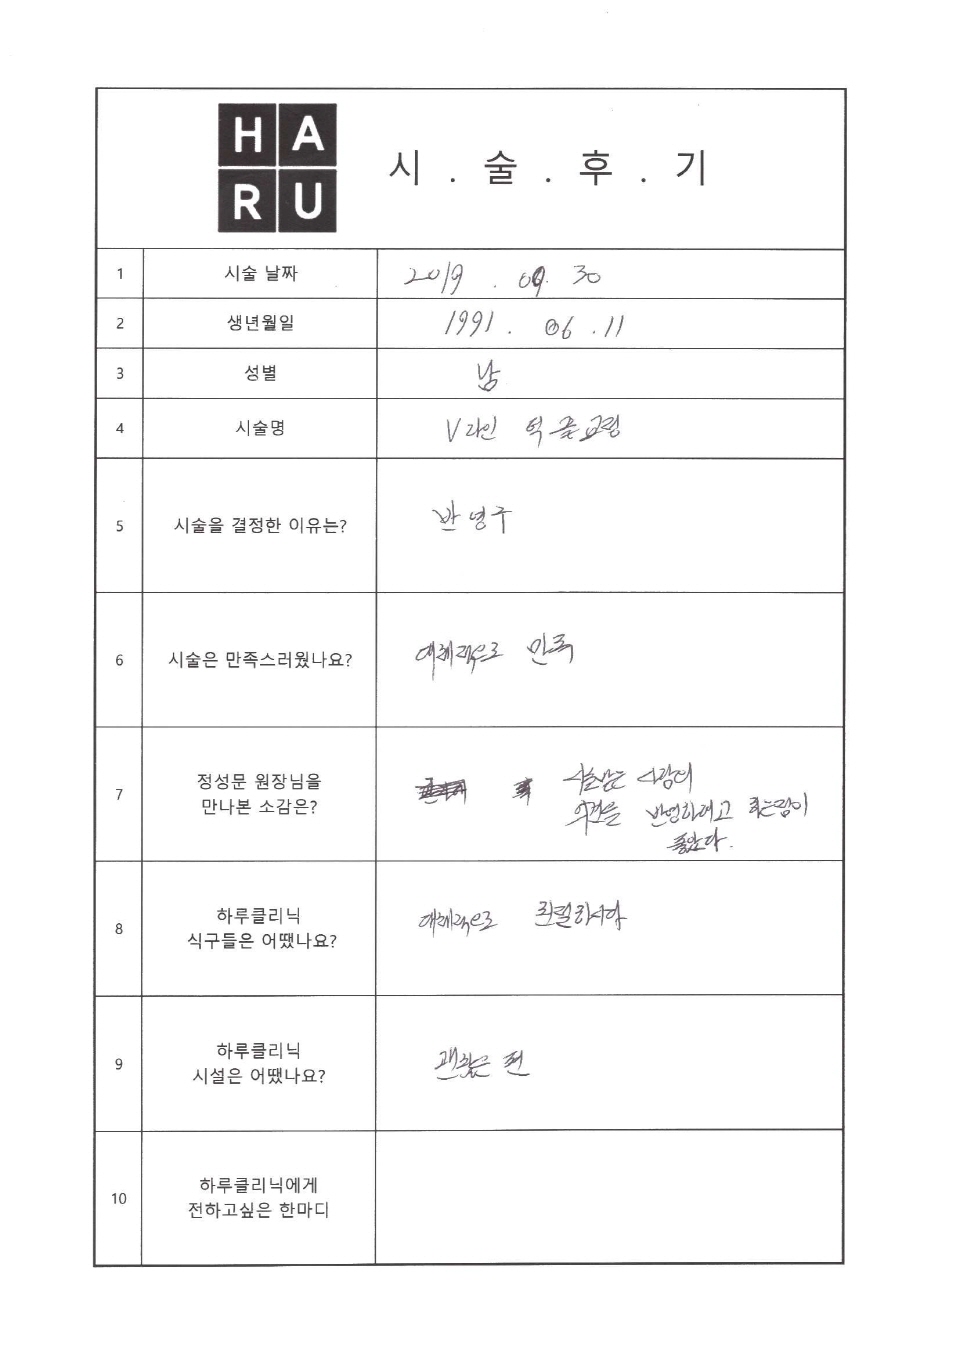 HA
RU
시 . 술 . 후 . 기
1 시술 날짜 2019 . 09. 30
2 생년월일 1991 . 06 . 11
3 성별 남
4 시술명 V라인
5 시술을 결정한 이유는? 반영구
6 시술은 만족스러웠나요? 대체적으로 만족
7 정성문 원장님을
만나본 소감은?
시술받는 사람의
의견을 반영하려고 하는점이
좋았다.
8 하루클리닉
식구들은 어땠나요?
대체적으로 친절하시다
9 하루클리닉
시설은 어땠나요?
괜찮은 편
10 하루클리닉에게
전하고싶은 한마디